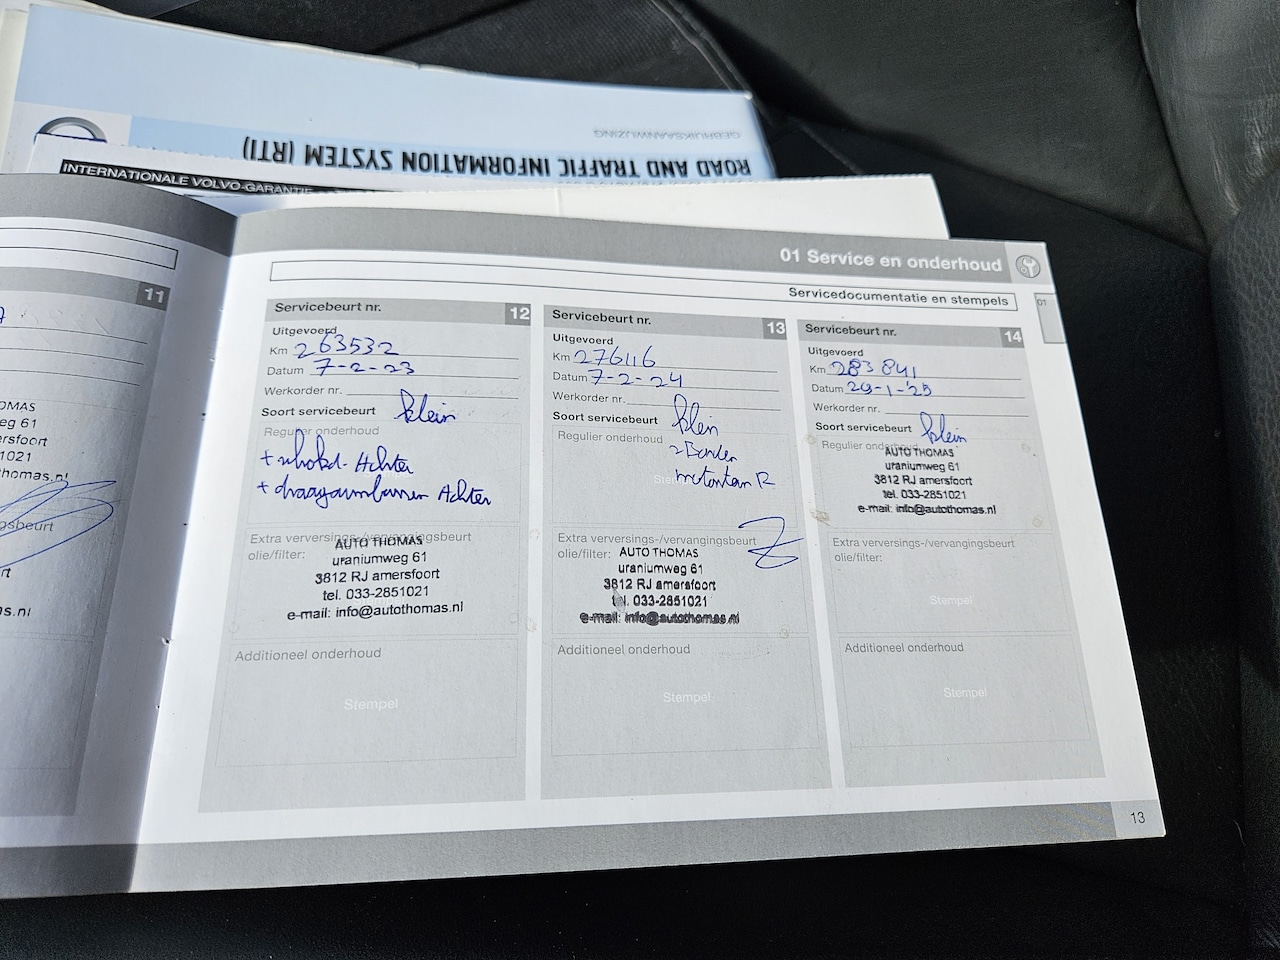 GEBRUIKSAANWIJZING
ROAD AND TRAFFIC INFORMATION SYSTEM (RTI)
INTERNATIONALE VOLVO-GARANTIE
01 Service en onderhoud
Servicedocumentatie en stempels
01
11
OMAS
eg 61
ersfoort
1021
homas.nl
gsbeurt
rt
s.nl
Servicebeurt nr. 12
Uitgevoerd
Km 263532
Datum 7-2-23
Werkorder nr.
Soort servicebeurt klein
Regulier onderhoud
+ schokd. Achter
+ draagarmbussen Achter
Extra verversings-/vervangingsbeurt
olie/filter:
AUTO THOMAS
uraniumweg 61
3812 RJ amersfoort
tel. 033-2851021
e-mail: info@autothomas.nl
Additioneel onderhoud
Stempel
Servicebeurt nr. 13
Uitgevoerd
Km 276116
Datum 7-2-24
Werkorder nr.
Soort servicebeurt klein
Regulier onderhoud
Stem
Extra verversings-/vervangingsbeurt
olie/filter:
AUTO THOMAS
uraniumweg 61
3812 RJ amersfoort
tel. 033-2851021
e-mail: info@autothomas.nl
Additioneel onderhoud
Stempel
Servicebeurt nr. 14
Uitgevoerd
Km 283841
Datum 29-1-'25
Werkorder nr.
Soort servicebeurt klein
Regulier onderhoud
AUTO THOMAS
uraniumweg 61
3812 RJ amersfoort
tel. 033-2851021
e-mail: info@autothomas.nl
Extra verversings-/vervangingsbeurt
olie/filter:
Stempel
Additioneel onderhoud
Stempel
13